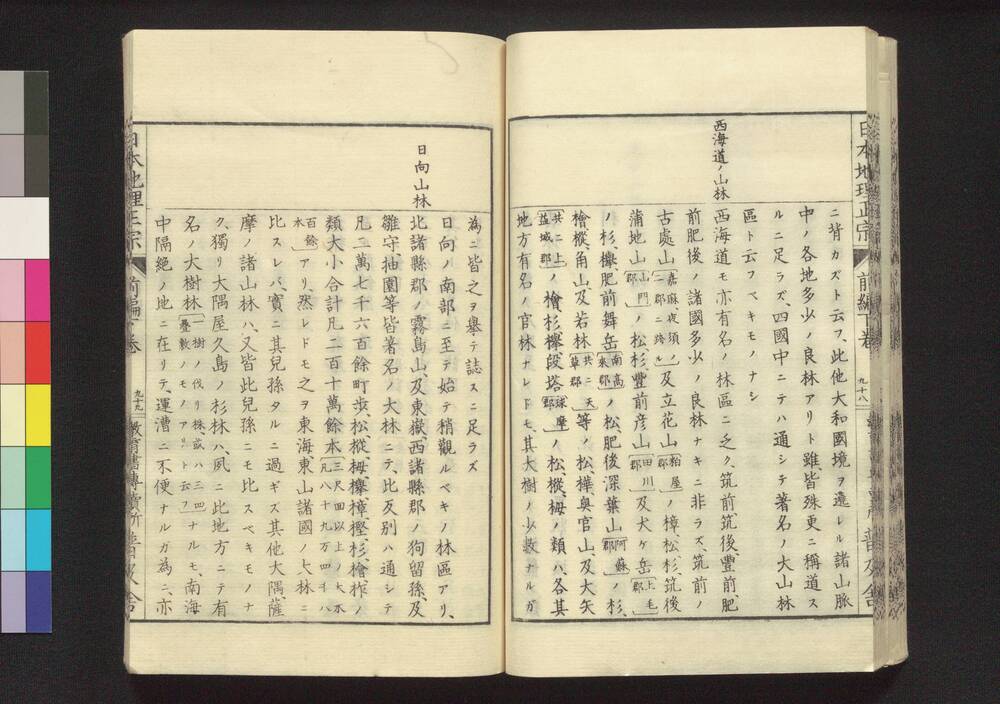 日本地理正宗
前編下巻
九十八
普及舎
西海道ノ山林
ニ背カズト云フ、此他大和國境ヲ遶レル諸山脈
中ノ各地多少ノ良林アリト雖、皆殊更ニ稱道ス
ルニ足ラズ、四國中ニテハ通シテ著名ノ大山林
區ト云フベキモノナシ
西海道モ亦有名ノ林區ニ乏ク、筑前筑後豐前、肥
前肥後ノ諸國多少ノ良林ナキニ非ラズ、筑前ノ
古處山(嘉麻、夜須ノ二郡ニ跨ル)及立花山(粕屋郡)ノ樟、松、杉、筑後
蒲地山(山門郡)ノ松杉、豐前彦山(田川郡)及犬ヶ岳(上毛郡)
ノ杉、櫸、肥前舞岳(南高來郡)ノ松、肥後深葉山(阿蘇郡)ノ杉、
檜、樅、角山、及若林(共ニ天草郡)等ノ松、樺、奥官山、及大矢
(共ニ上益城郡)ノ檜杉櫸、段塔(球摩郡)ノ松、樅、栂ノ類ハ、各其
地方有名ノ官林ナレドモ、其大樹ノ少數ナルガ
日向山林
為ニ皆之ヲ擧テ誌スニ足ラズ
日向ノ南部ニ至テ始テ稍觀ルベキノ林區アリ、
北諸縣郡ノ霧島山、及東嶽、西諸縣郡ノ狗留孫、及
雛守、抽園等皆著名ノ大林ニテ、比反別ハ通シテ
凡二萬七千六百餘町歩、松、樅、栂、櫸、樟、樫、杉、檜、柞ノ
類大小合計凡二百十萬餘本(三尺回以上ノ大木凡八十九万四千八
百餘本)アリ、然レドモ之ヲ東海、東山諸國ノ大林ニ
比スレバ、實ニ其兒孫タルニ過ギズ其他大隅薩
摩ノ諸山林ハ、又皆此兒孫ニモ比スベキモノナ
ク、獨リ大隅屋久島ノ杉林ハ、夙ニ此地方ニテ有
名ノ大樹林(一樹ノ伐リ株或ハ三四疊敷ノモノアリト云フ)ナルモ、南海
中隔絶ノ地ニ在リテ、運漕ニ不便ナルガ為ニ、亦
日本地理正宗
前編下巻
九十九
教育書專賣所
普及舎